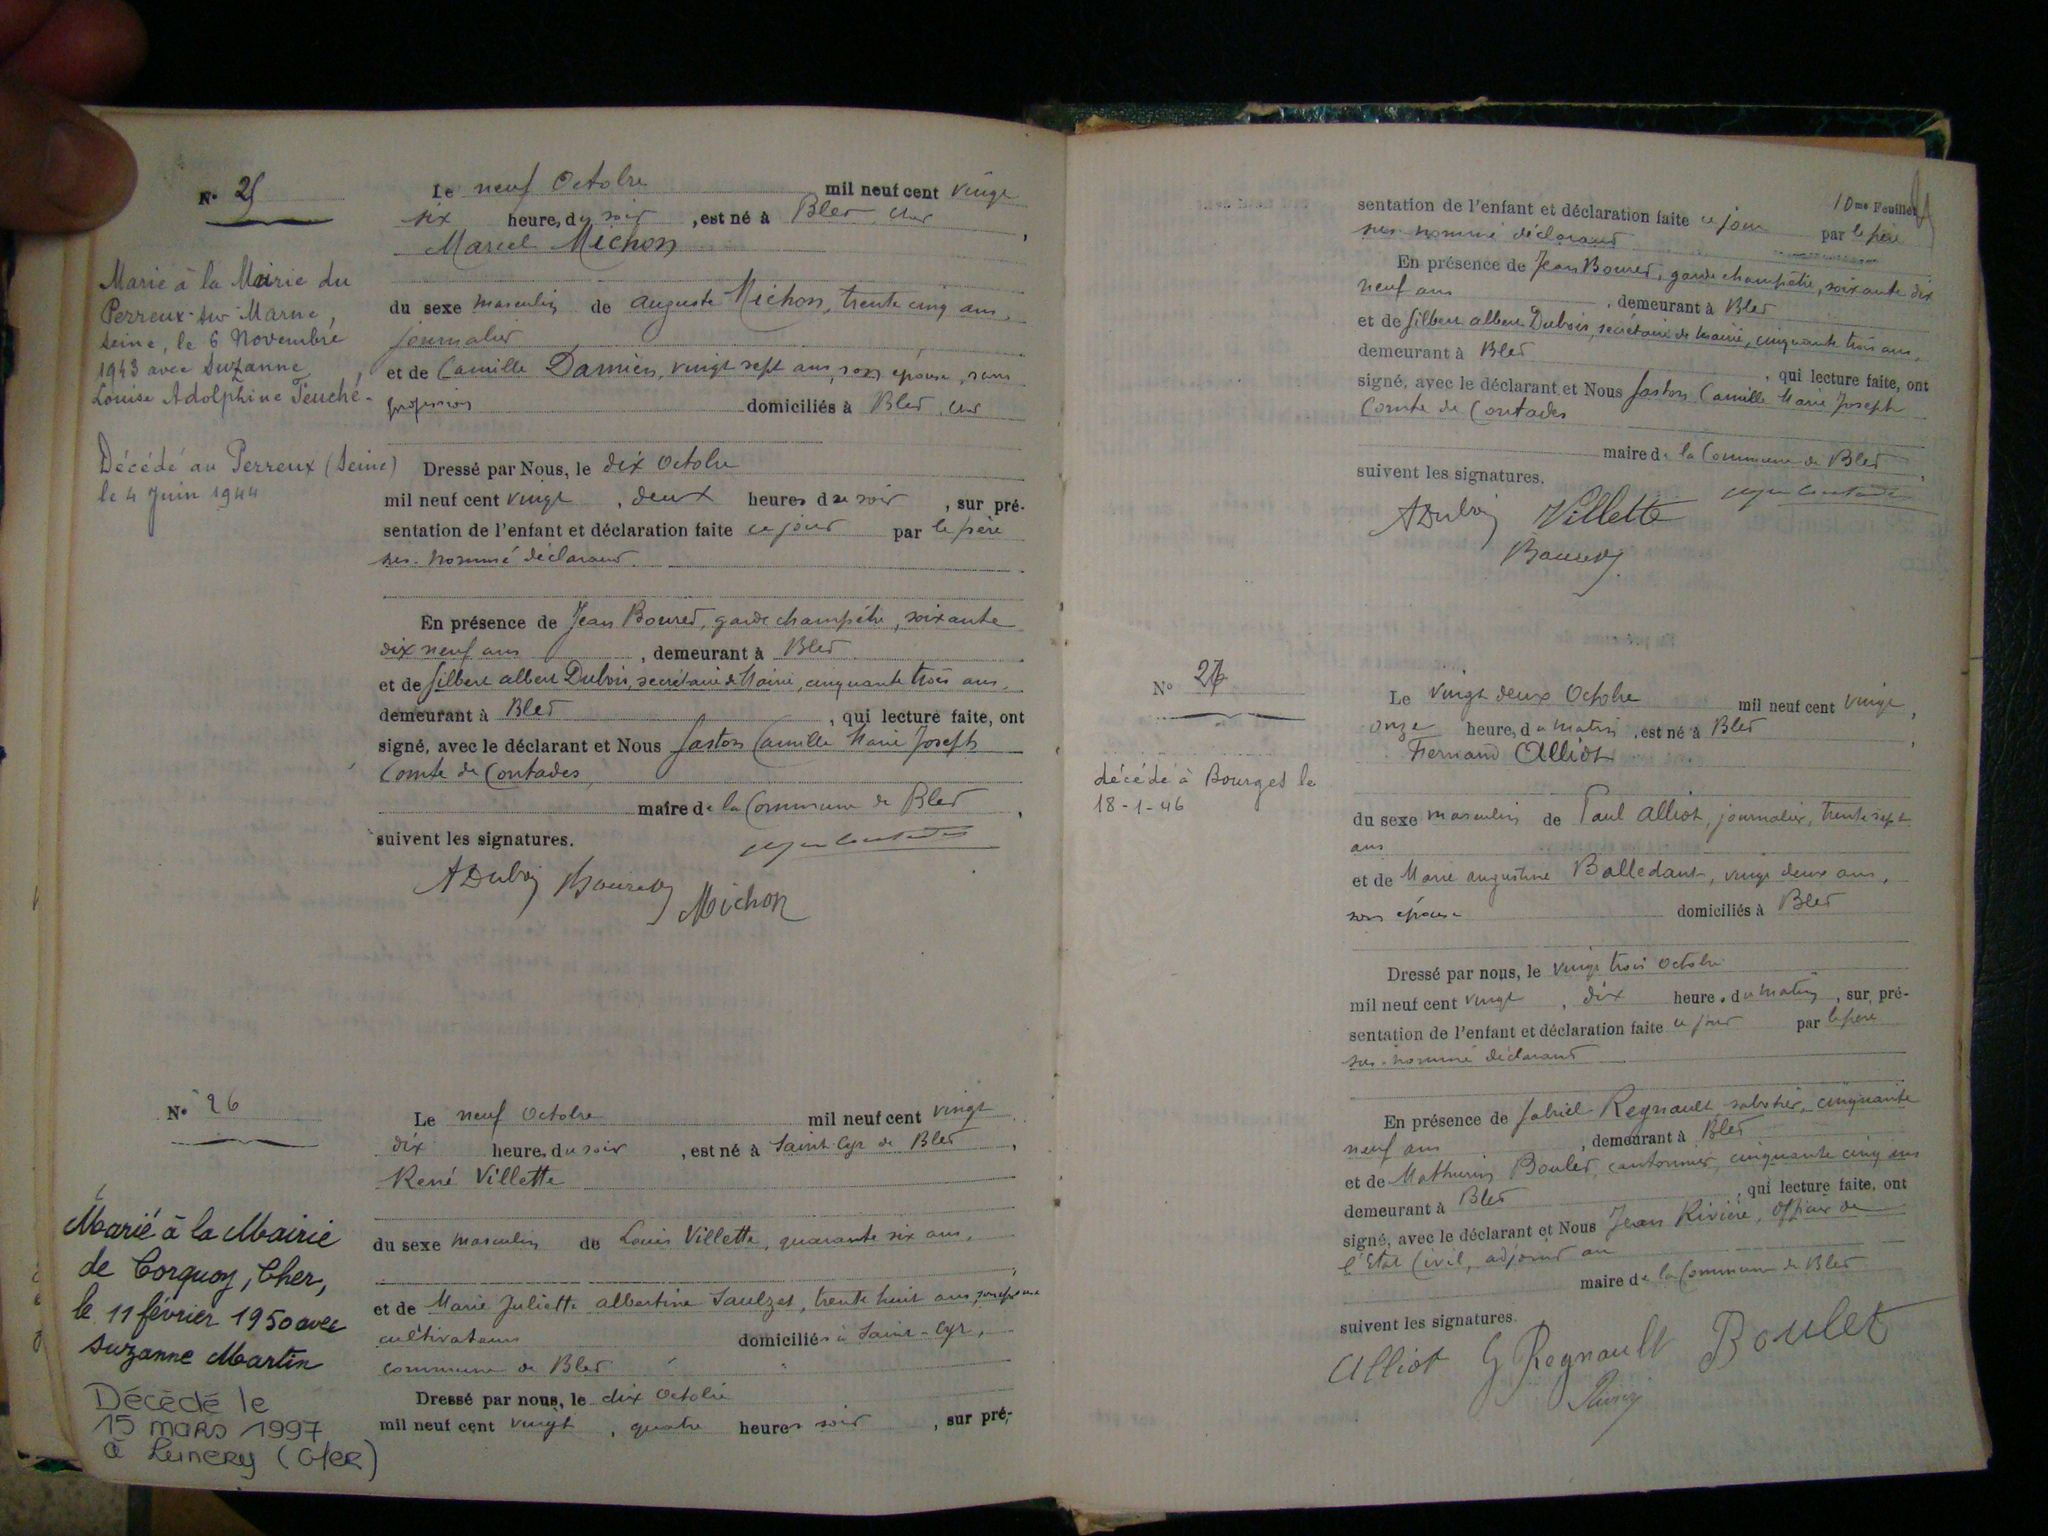 N° 25
Marié à la Mairie du
Perreux-sur-Marne,
Seine, le 6 Novembre
1943 avec Suzanne
Louise Adolphine Teuché-
Décédé au Perreux (Seine)
le 4 Juin 1944
Le neuf Octobre mil neuf cent vingt
six heures du soir, est né à Blet, Cher,
Marcel Michon
du sexe masculin de Auguste Michon, trente cinq ans,
journalier
et de Camille Damien, vingt sept ans, son épouse, sans
profession domiciliés à Blet, Cher
Dressé par Nous, le dix Octobre
mil neuf cent vingt, deux heures du soir, sur pré-
sentation de l'enfant et déclaration faite ce jour par le père
sus-nommé déclarant
En présence de Jean Bouret, garde champêtre, soixante
dix neuf ans, demeurant à Blet
et de Gilbert Albert Dubois, secrétaire de Mairie, cinquante trois ans,
demeurant à Blet, qui lecture faite, ont
signé, avec le déclarant et Nous Gaston Camille Marie Joseph
Comte de Contades,
maire de la Commune de Blet,
suivent les signatures.
ADubois Bouret Michon
N° 26
Marié à la Mairie
de Corquoy, Cher,
le 11 février 1950 avec
Suzanne Martin
Décédé le
15 mars 1997
à Lunery (Cher)
Le neuf Octobre mil neuf cent vingt
dix heures du soir, est né à Saint-Cyr de Blet,
René Villette
du sexe masculin de Louis Villette, quarante six ans,
et de Marie Juliette Albertine Saulzet, trente huit ans, son épouse
cultivateurs domiciliés à Saint-Cyr,
commune de Blet
Dressé par nous, le dix Octobre
mil neuf cent vingt, quatre heures soir, sur pré-
10me Feuillet
sentation de l'enfant et déclaration faite ce jour par le père
sus-nommé déclarant
En présence de Jean Bouret, garde champêtre, soixante dix
neuf ans, demeurant à Blet
et de Gilbert Albert Dubois, secrétaire de Mairie, cinquante trois ans,
demeurant à Blet, qui lecture faite, ont
signé, avec le déclarant et Nous Gaston Camille Marie Joseph
Comte de Contades
maire de la Commune de Blet,
suivent les signatures.
ADubois Villette
Bouret
N° 27
décédé à Bourges le
18-1-46
Le vingt deux Octobre mil neuf cent vingt,
onze heure, du matin, est né à Blet,
Fernand Alliot
du sexe masculin de Paul Alliot, journalier, trente sept
ans
et de Marie Augustine Balledant, vingt deux ans,
son épouse domiciliés à Blet
Dressé par nous, le vingt trois Octobre
mil neuf cent vingt, dix heure du matin, sur pré-
sentation de l'enfant et déclaration faite ce jour par le père
sus-nommé déclarant
En présence de Gabriel Regnault, sabotier, cinquante
neuf ans, demeurant à Blet
et de Mathurin Boulet, cantonnier, cinquante cinq ans
demeurant à Blet, qui lecture faite, ont
signé, avec le déclarant et Nous Jean Rivière, Officier de
l'Etat Civil, adjoint au
maire de la Commune de Blet
suivent les signatures.
Alliot G Regnault Boulet